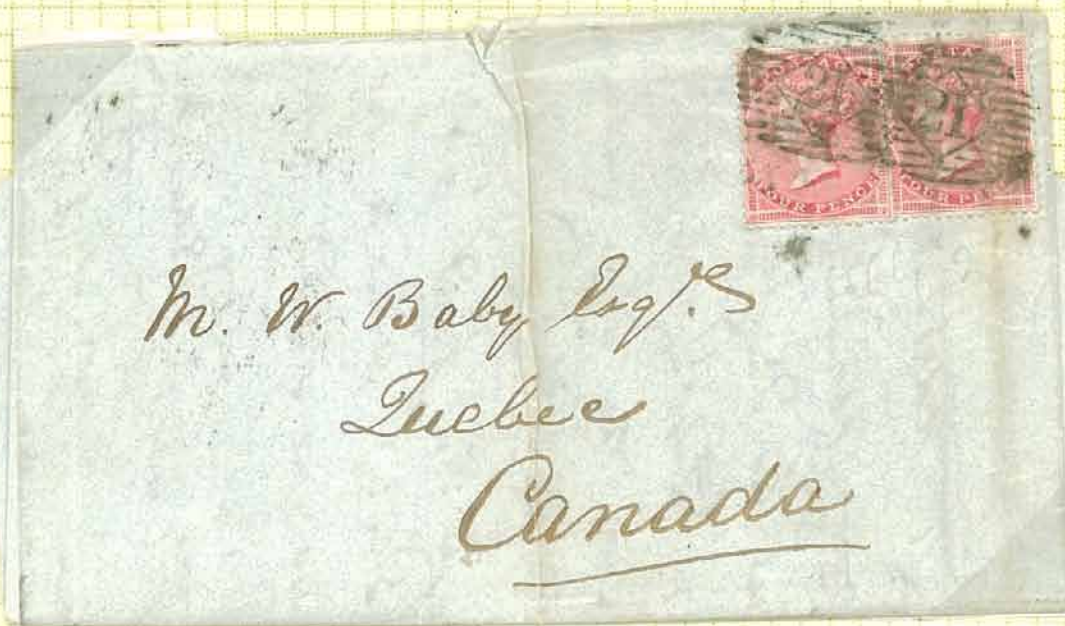 21 21
FOUR PENCE FOUR PE
M. W. Baby Esqr.
Quebec
Canada